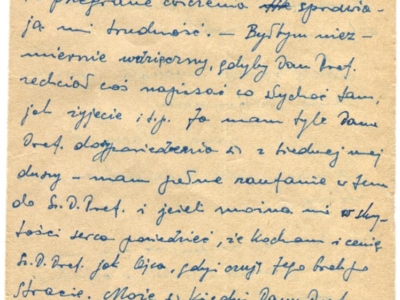 i przegrane ćwiczenia sprawia-
ja mi trudność. – Byłbym niez-
miernie wdzięczny, gdyby Pan Prof.
zechciał coś napisać co słychać tam,
jak żyjecie i t.p. Ja mam tyle Panu
Prof. do powiedzenia z biednej mej
duszy – mam pełne zaufanie w tem
do Sz.P.Prof. i jeżeli można mi w skry-
tości serca powiedzieć, że Kocham i cenię
Sz.P.Prof. jak Ojca, gdyż czuję Jego
stracie. Może Kiedyś